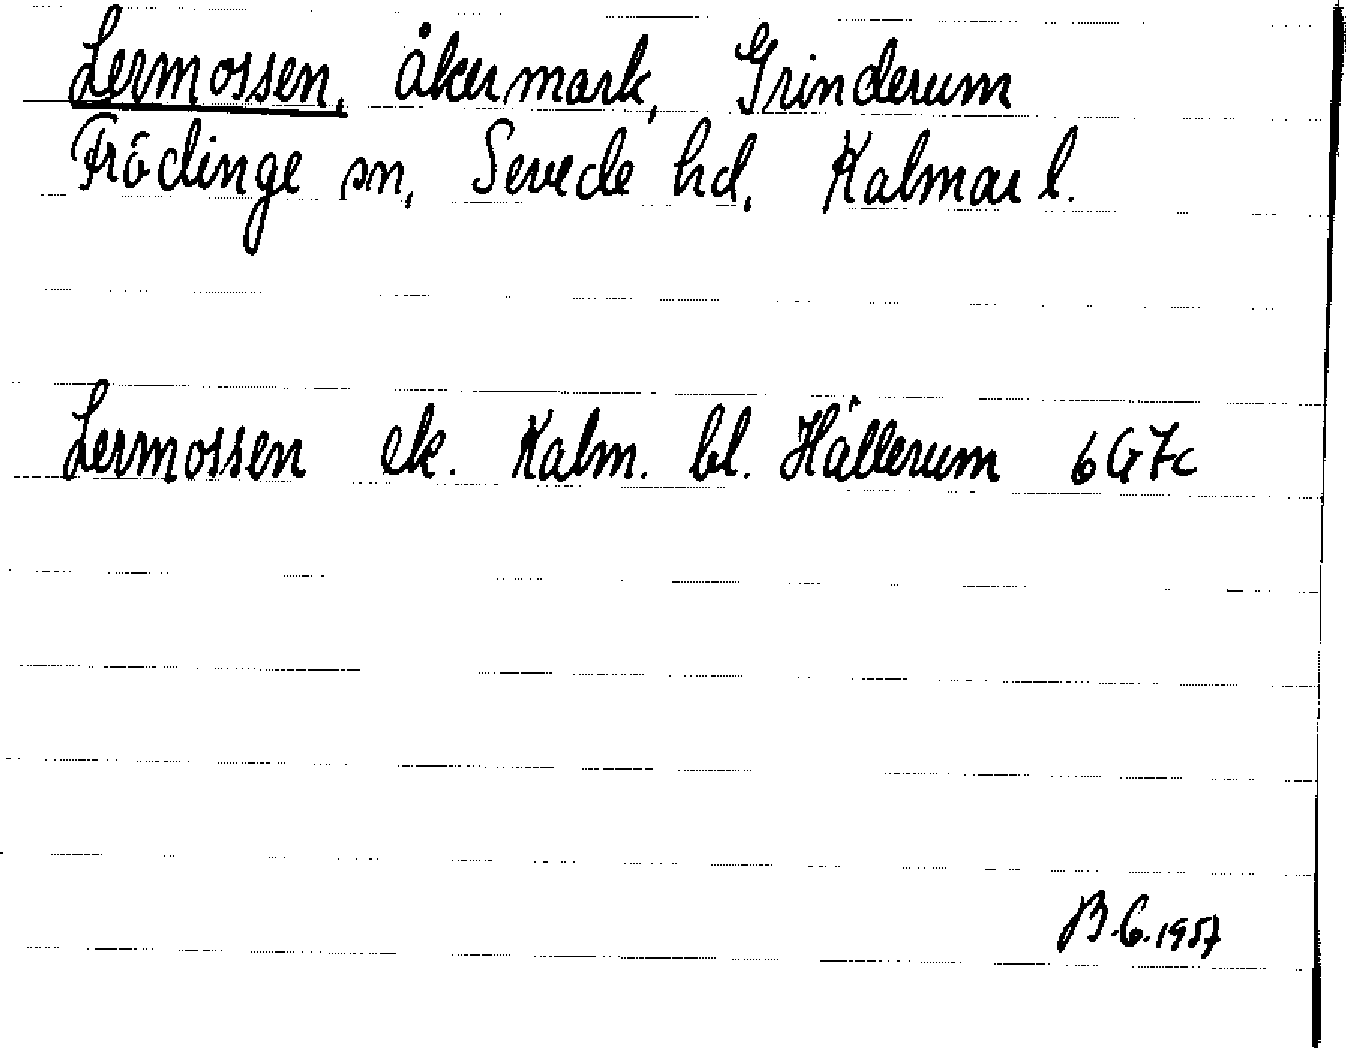 Lermossen, åkermark, Grinderum
Frödinge sn, Sevede hd, Kalmar l.
Lermossen ek. Kalm. bl. Hållerum 6G7c
B.G. 1957